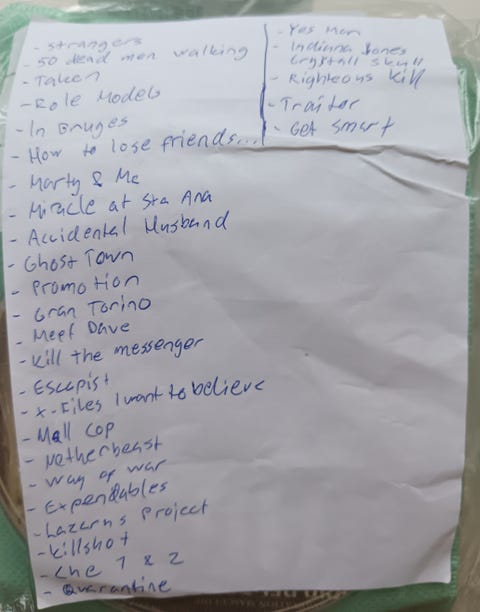 - Strangers
- 50 dead men walking
- Taken
- Role Models
- In Bruges
- How to lose friends...
- Marty & Me
- Miracle at Sta Ana
- Accidental Husband
- Ghost Town
- Promotion
- Gran Torino
- Meet Dave
- Kill the messenger
- Escapist
- X-Files I want to believe
- Mall Cop
- Netherbeast
- Way of war
- Expendables
- Lazarus Project
- Killshot
- Che 1 & 2
- Quarantine
- Yes Man
- Indiana Jones
Crystall skull
- Righteous Kill
- Traitor
- Get Smart